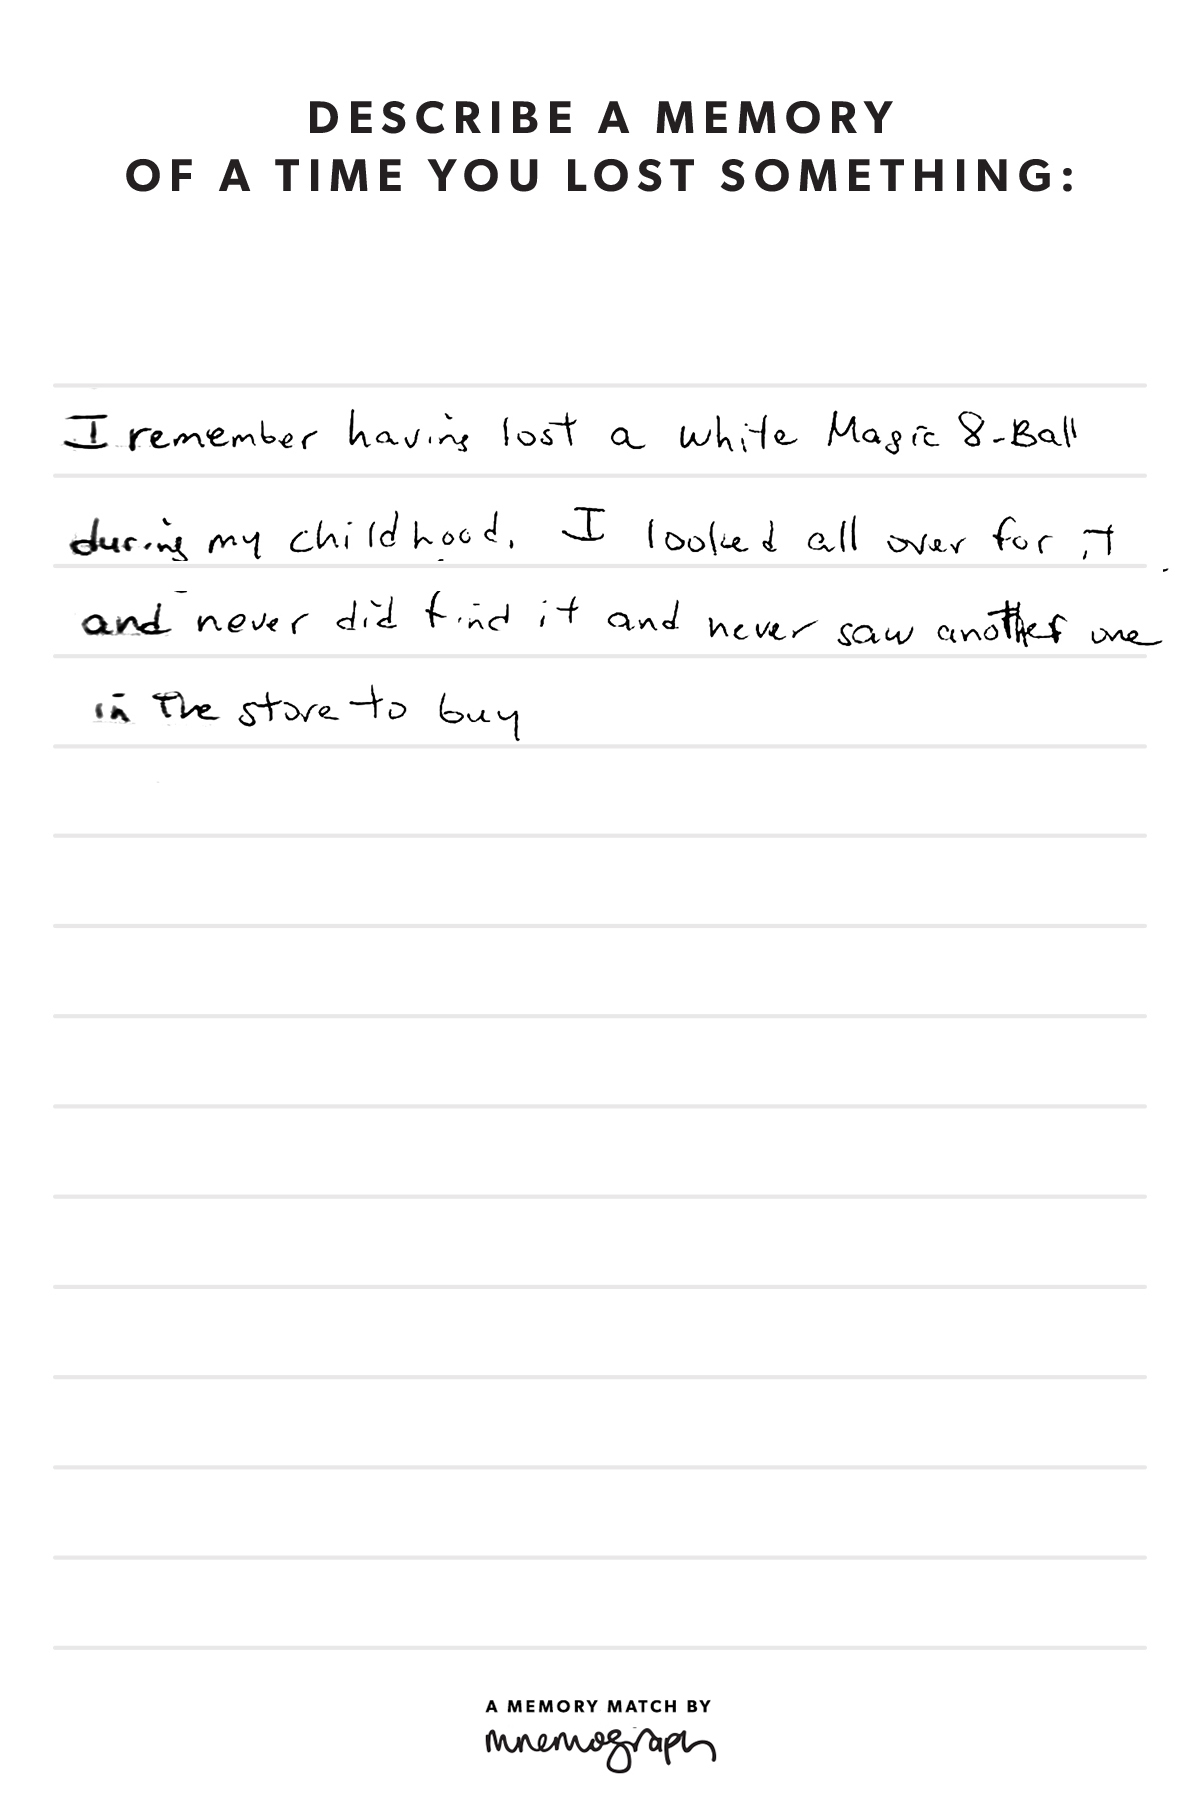 DESCRIBE A MEMORY
OF A TIME YOU LOST SOMETHING:
I remember having lost a white Magic 8-Ball
during my childhood. I looked all over for it
and never did find it and never saw another one
in the store to buy
A MEMORY MATCH BY
mnemograph